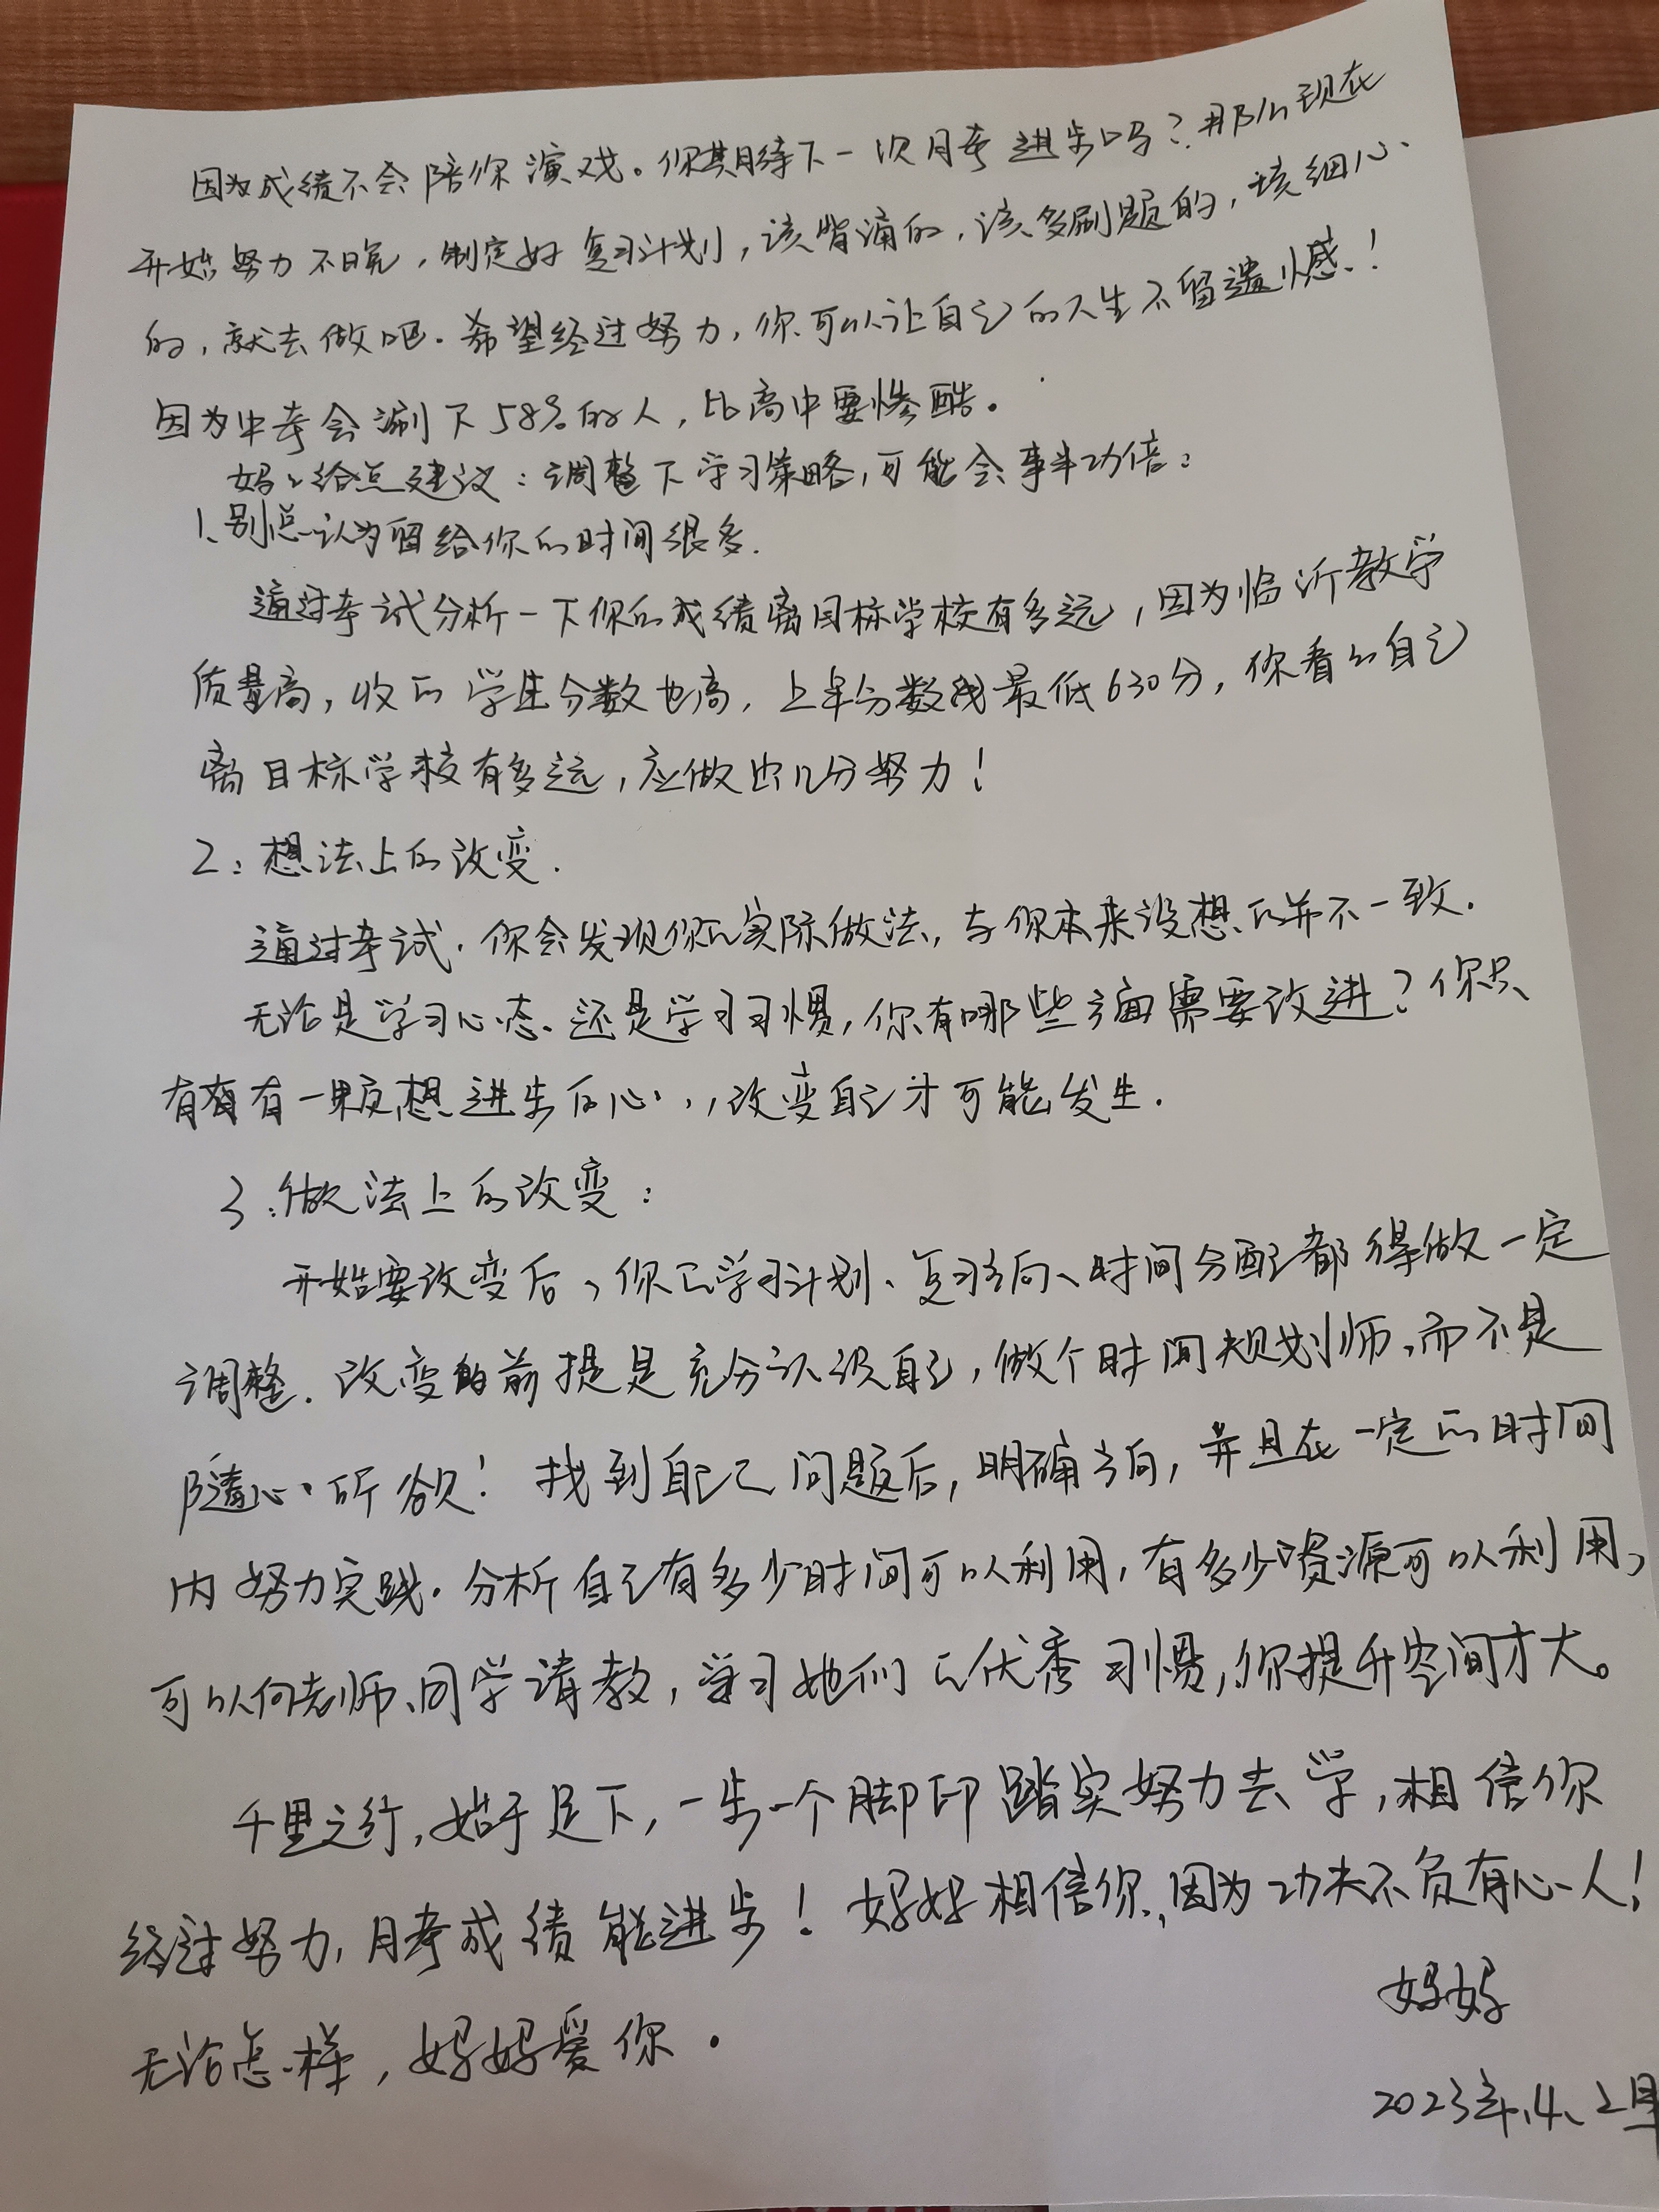 因为成绩不会陪你演戏。你期待下一次月考进步吗？那么现在
开始努力不晚，制定好复习计划，该背诵的，该多刷题的，该细心
的，就去做吧。希望经过努力，你可以让自己的人生不留遗憾！
因为中考会涮下58%的人，比高中要惨酷。
妈妈给点建议：调整下学习策略，可能会事半功倍：
1、别总认为留给你的时间很多.
通过考试分析一下你的成绩离目标学校有多远，因为临沂教学
质量高，收的学生分数也高，上年分数线最低630分，你看的自己
离目标学校有多远，应做出几分努力！
2：想法上的改变.
通过考试.你会发现你的实际做法，与你本来设想的并不一致.
无论是学习心态、还是学习习惯，你有哪些方面需要改进？你只
有有一颗想进步的心，，改变自己才可能发生.
3：做法上的改变：
开始要改变后，你的学习计划、复习方向、时间分配都得做一定
调整.改变的前提是充分认识自己，做个时间规划师，而不是
随心所欲！找到自己问题后，明确方向，并且在一定的时间
内努力实践.分析自己有多少时间可以利用，有多少资源可以利用，
可以向老师、同学请教，学习她们的优秀习惯，你提升空间才大。
千里之行，始于足下，一步一个脚印踏实努力去学，相信你
经过努力，月考成绩能进步！妈妈相信你，因为功夫不负有心人！
妈妈
无论怎样，妈妈爱你.
2023年.4.2早